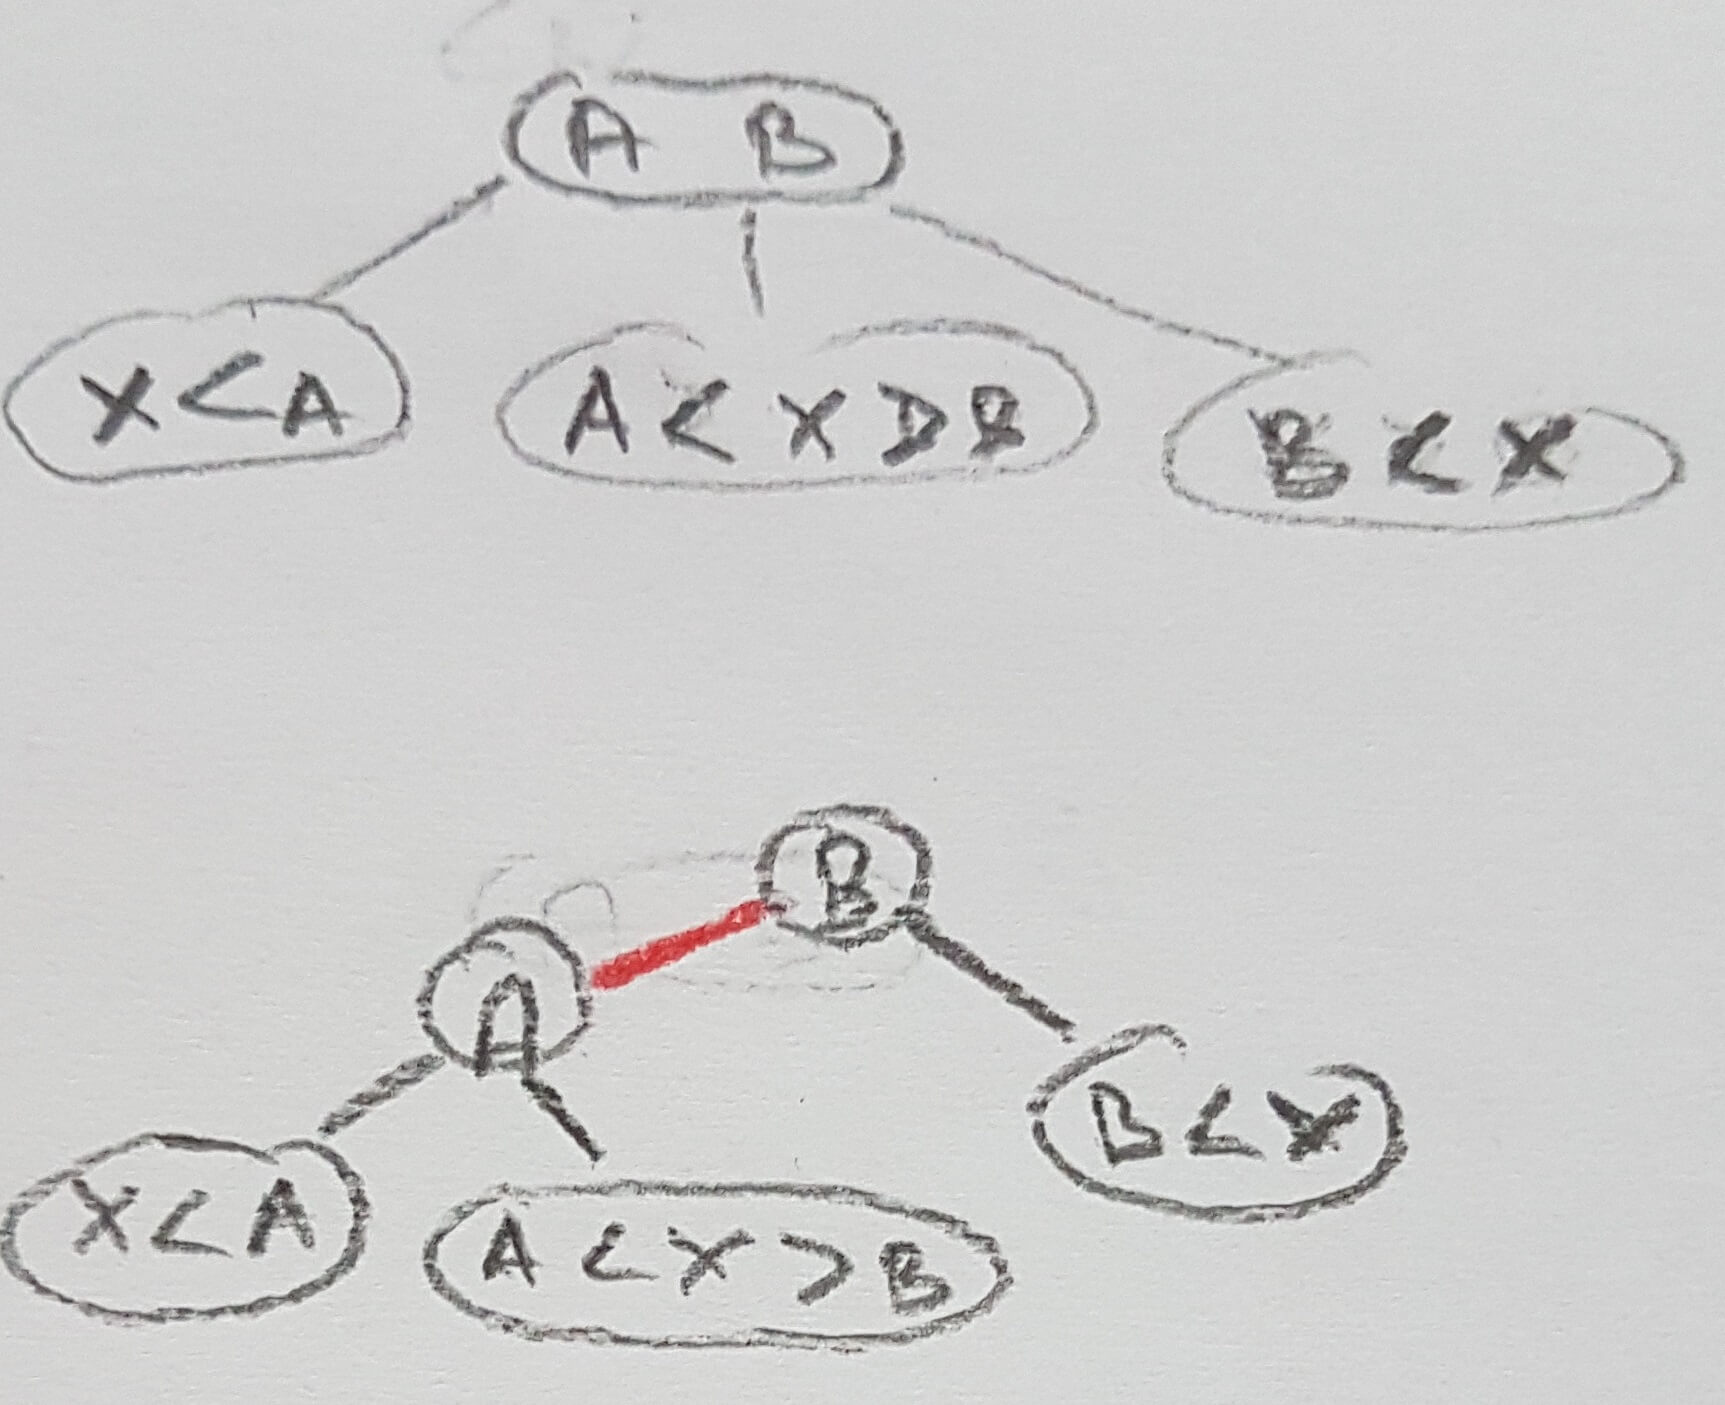 A B
X < A
A < X > B
B < X
B
A
B < X
X < A
A < X > B